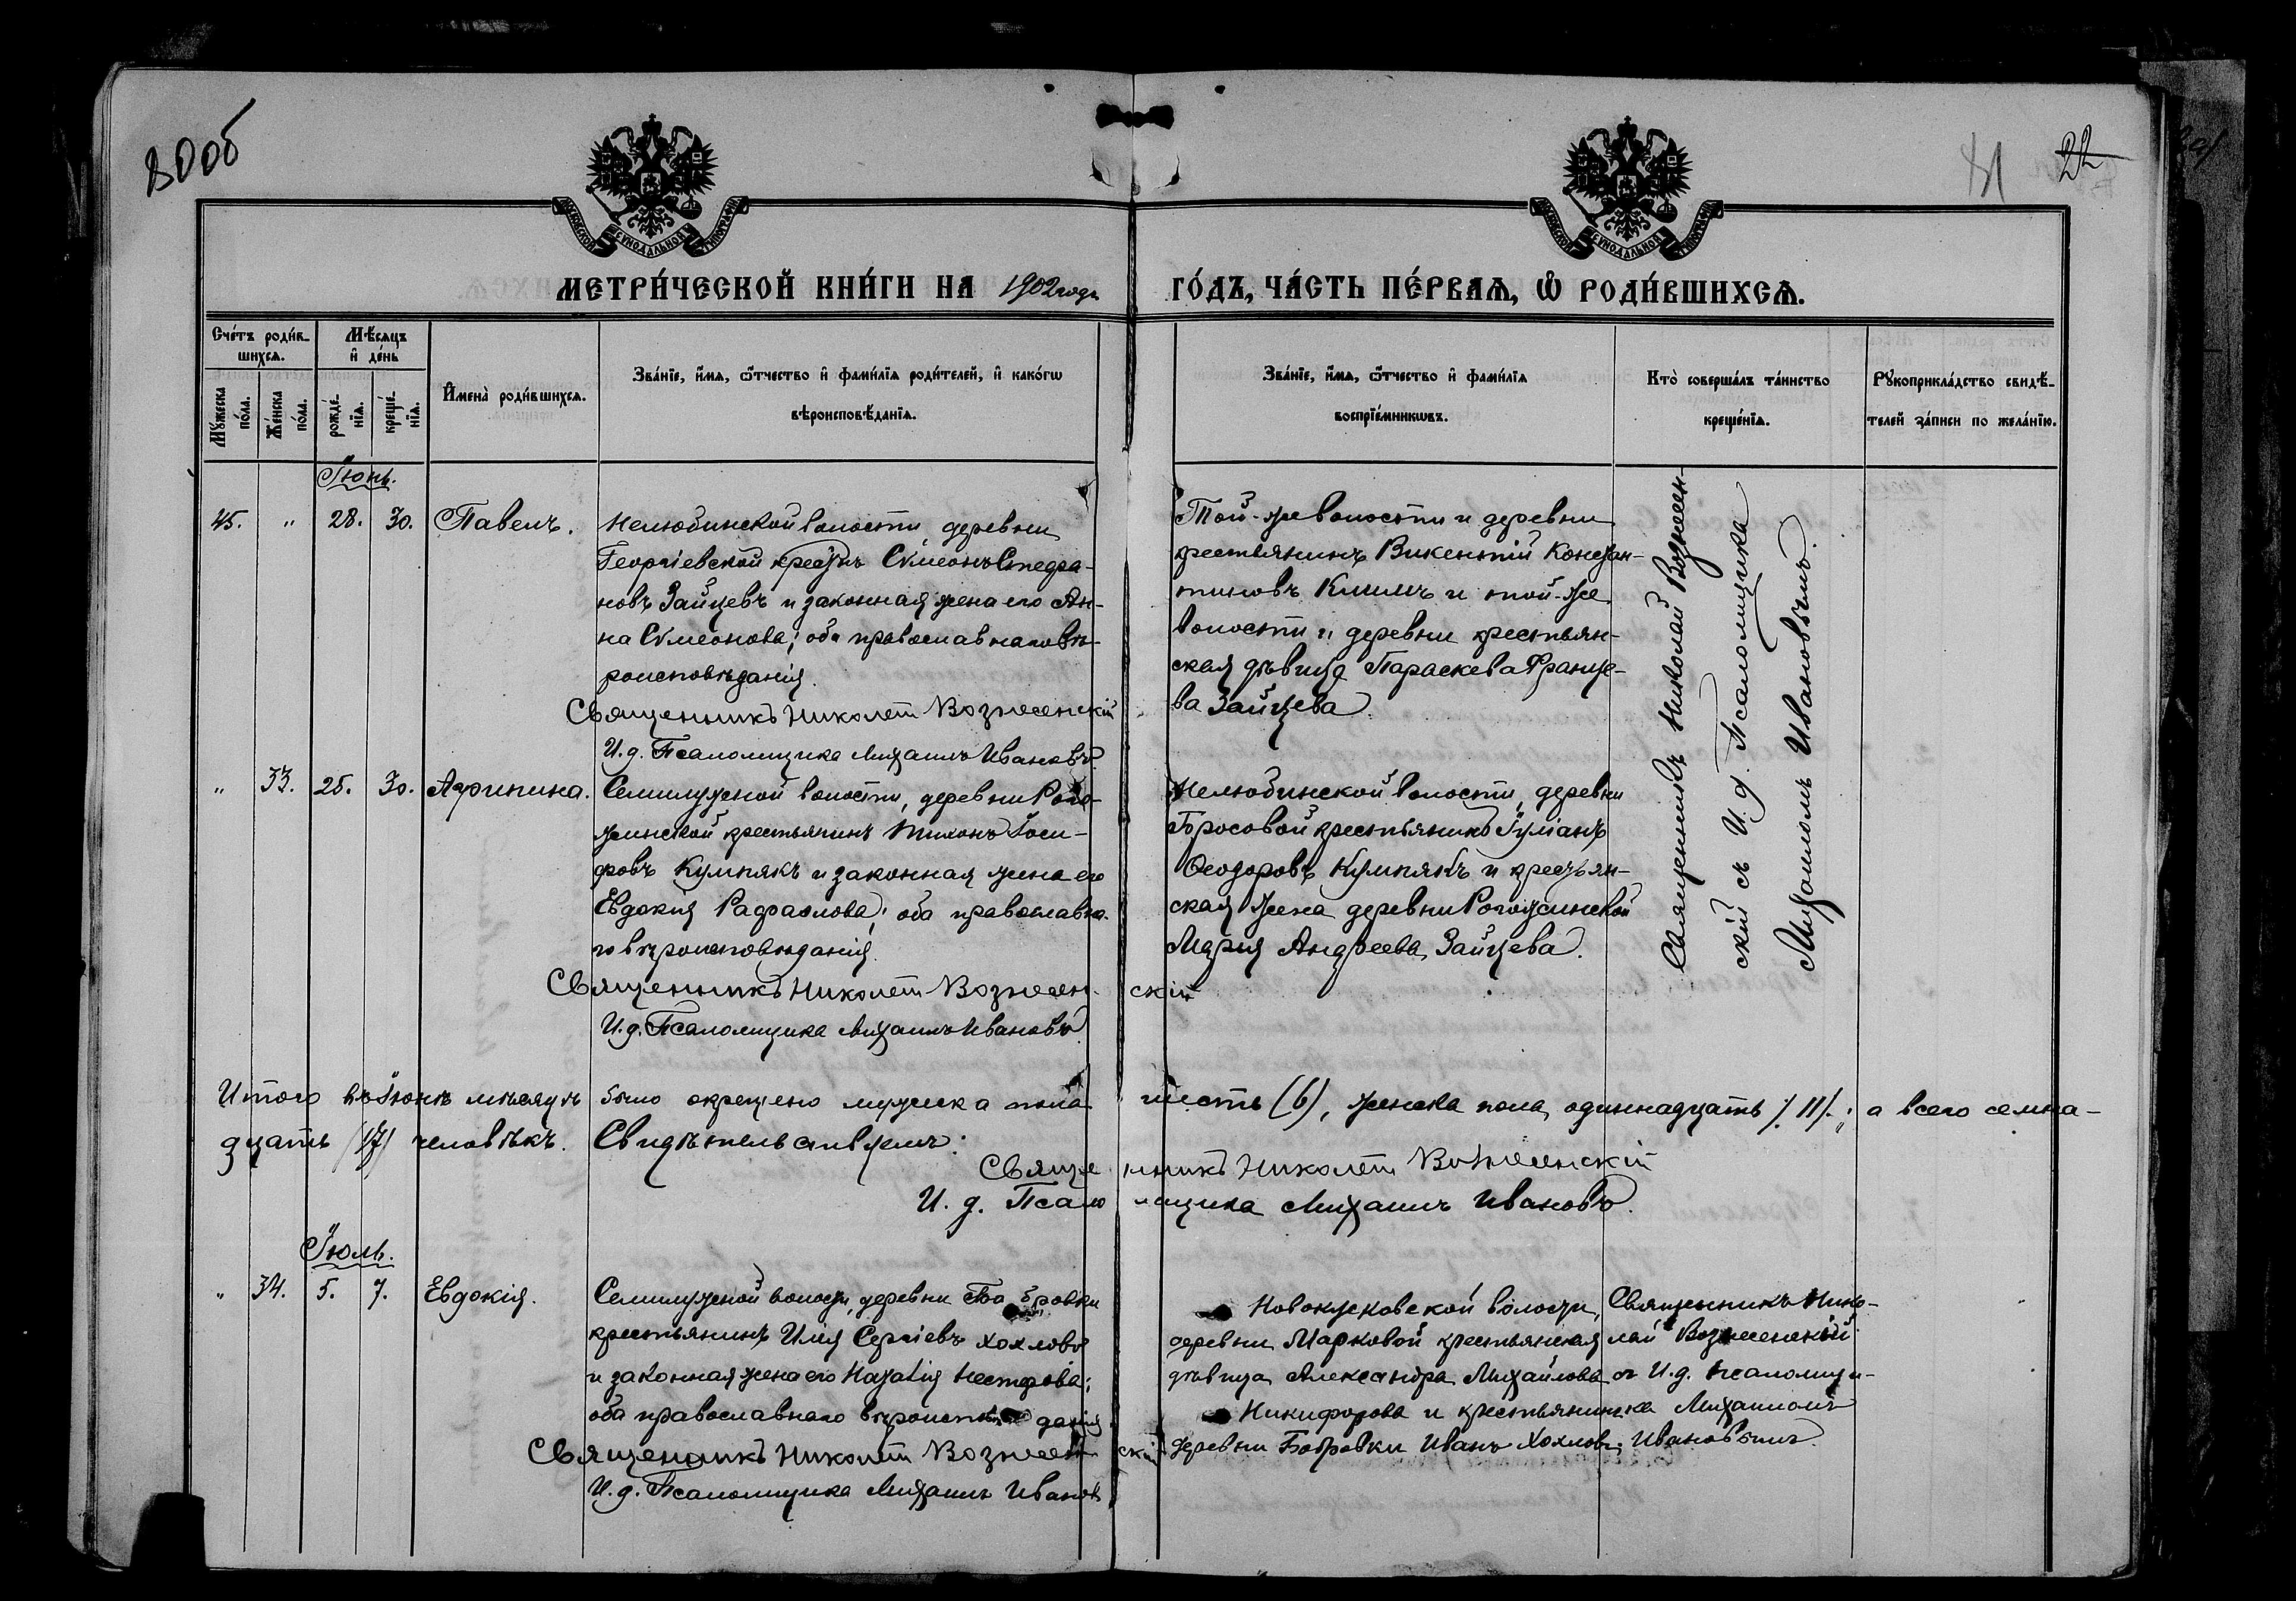 80об
22
МЕТРИ́ЧЕСКОЙ КНИ́ГИ НА 1902 года ГО́ДЪ, ЧА́СТЬ ПЕ́РВАѦ, Ѡ РОДИ́ВШИХСѦ.
Сче́тъ роди́в-
шихсѧ.
Мѣ́сѧцъ
и де́нь
Мꙋ́жеска
по́ла.
Же́нска
по́ла.
рожде́-
нїѧ.
креще́-
нїѧ.
Имена̀ роди́вшихсѧ.
Зва́нїе, и́мѧ, ѻ́тчество и фами́лїѧ роди́телей, и како́гѡ
вѣроисповѣ́данїѧ.
Зва́нїе, и́мѧ, ѻ́тчество и фами́лїѧ
воспрїе́мникѡвъ.
Кто̀ соверша́лъ та́инство
креще́нїѧ.
Рꙋкоприкла́дство свидѣ́-
телей за́писи по жела́нїю.
Іюнь.
45. " 28. 30. Павелъ.
Нелюбинской волости деревни
Георгіевской крест҃нъ Сѵмеонъ Стефа-
новъ Зайцевъ и законная жена его Ан-
на Сѵмеонова; оба православнаго вѣ-
роисповѣданія.
Священникъ Николай Вознесенскій
И. д. Псаломщика Михаилъ Ивановъ.
Той-же волости и деревни
крестьянинъ Викентій Констан-
тиновъ Климъ и той-же
волости и деревни крестьян-
ская дѣвица Параскева Франце-
ва Зайцева.
Священникъ Николай Вознесен-
скій съ И. д. Псаломщика
Михаиломъ Ивановымъ.
" 33. 25. 30. Агрипина.
Семилужной волости, деревни Рого-
жинской крестьянинъ Тихонъ Іоси-
фовъ Кумпякъ и законная жена его
Евдокія Рафаилова; оба православна-
го вѣроисповѣданія.
Священникъ Николай Вознесенскій
И. д. Псаломщика Михаилъ Ивановъ
Нелюбинской волости, деревни
Бросовой крестьянинъ Іуліанъ
Ѳеодоровъ Кумпякъ и крестьян-
ская жена деревни Рогожинской
Марія Андреева Зайцева.
Итого въ Іюнѣ мѣсяцѣ было окрещено мужеска пола шесть (6), женска пола одиннадцать /. 11/. ; а всего семна-
дцать /17/ человѣкъ. Свидѣтельствуемъ:
Священникъ Николай Вознесенскій
И. д. Псаломщика Михаилъ Ивановъ.
Іюль.
" 34. 5. 7. Евдокія.
Семилужной волости, деревни Бобровки
крестьянинъ Илія Сергіевъ Хохловъ
и законная жена его Наталія Нестерова;
оба православнаго вѣроисповѣданія
Священникъ Николай Вознесенскій
И. д. Псаломщика Михаилъ Ивановъ
Новокусковской волости,
деревни Марковой крестьянская
дѣвица Александра Михайлова
Никифорова и крестьянинъ
деревни Бобровки Иванъ Хохловъ.
Священникъ Нико-
лай Вознесенскій
съ И. д. псаломщи-
ка Михаиломъ
Ивановымъ.